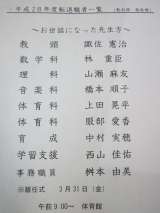 平成28年度転退職者一覧
～お世話になった先生方～
教頭 諏佐 憲治
数学科 林 重臣
理科 山瀬 麻友
音楽科 橋本 順子
体育科 上田 晃平
体育科 服部 愛香
育成 中村 実穂
学習支援 西山 佳祐
事務職員 桝本 由美
※離任式 3月31日(金)
午前9:00～ 体育館